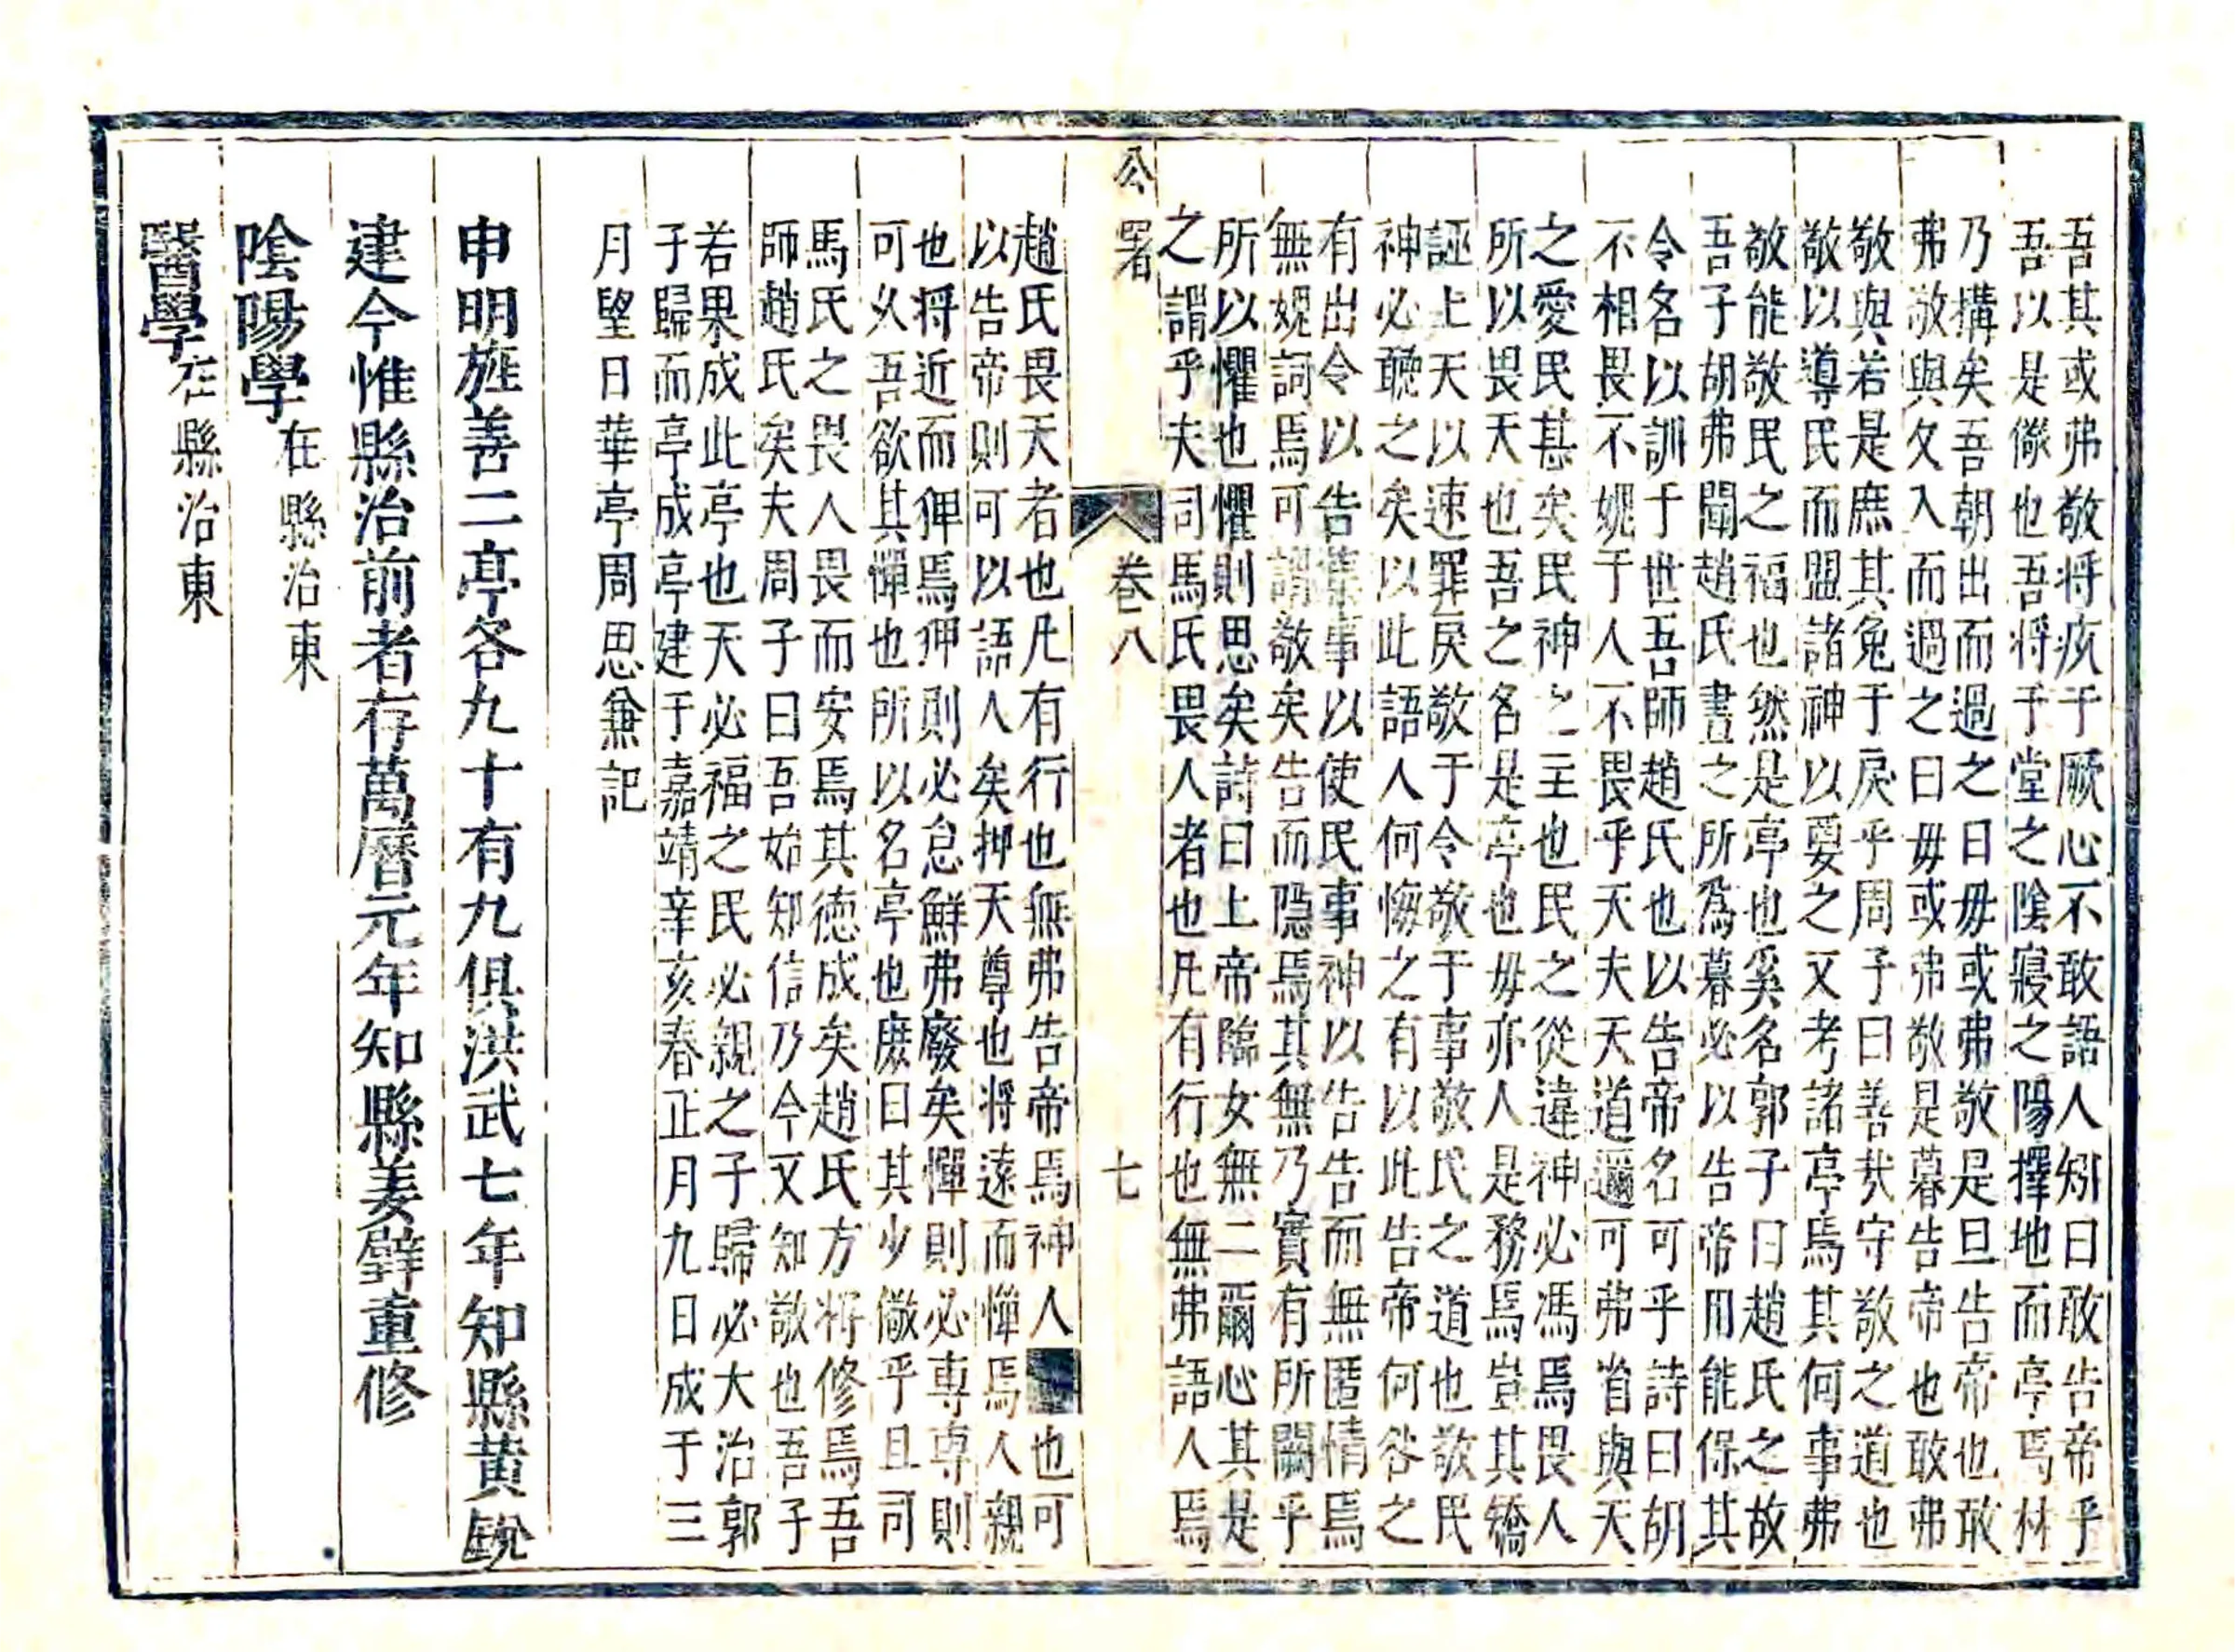 吾其或弗敬将疚于厥心不敢語人矧曰敢告帝乎
吾以是儆也吾将于堂之陰寢之陽擇地而亭焉林
乃搆矣吾朝出而過之曰毋或弗敬是旦告帝也敢
弗敬與夂入而過之曰毋或弗敬是暮告帝也敢弗
敬與若是庶其免于戾乎周子曰善㢤守敬之道也
敬以導民而盟諸神以要之又考諸亭焉其何事弗
敬能敬民之福也然是亭也奚名郭子曰趙氏之故
吾子胡弗聞趙氏晝之所爲暮必以告帝用能保其
令名以訓于世吾師趙氏也以告帝名可乎詩曰胡
不相畏不媿于人不畏乎天夫天道邇可弗省與天
之愛民甚矣民神之主也民之從違神必馮焉畏人
所以畏天也吾之名是亭也毋亦人是務焉豈其矯
誣上天以速罪戾敬于令敬于事敬民之道也敬民
神必聽之矣以此語人何悔之有以此告帝何咎之
有出令以告集事以使民事神以告告而無匿情焉
無媿詞焉可謂敬矣告而隱焉其無乃實有所闕乎
所以懼也懼則思矣詩曰上帝臨女無二爾心其是
之謂乎夫司馬氏畏人者也凡有行也無弗語人焉
公署
卷八
七
趙氏畏天者也凡有行也無弗告帝焉神人也可
以告帝則可以語人矣抑天尊也将遠而憚焉人親
也将近而狎焉狎則必怠鮮弗廢矣憚則必專專則
可乆吾欲其憚也所以名亭也庶曰其少儆乎且司
馬氏之畏人畏而安焉其德成矣趙氏方将修焉吾
師趙氏矣夫周子曰吾始知信乃今又知敬也吾子
若果成此亭也天必福之民必親之子歸必大治郭
子歸而亭成亭建于嘉靖辛亥春正月九日成于三
月望日華亭周思兼記
申明旌善二亭各九十有九俱洪武七年知縣黄銳
建今惟縣治前者存萬曆元年知縣姜璧重修
陰陽學在縣治東
醫學在縣治東